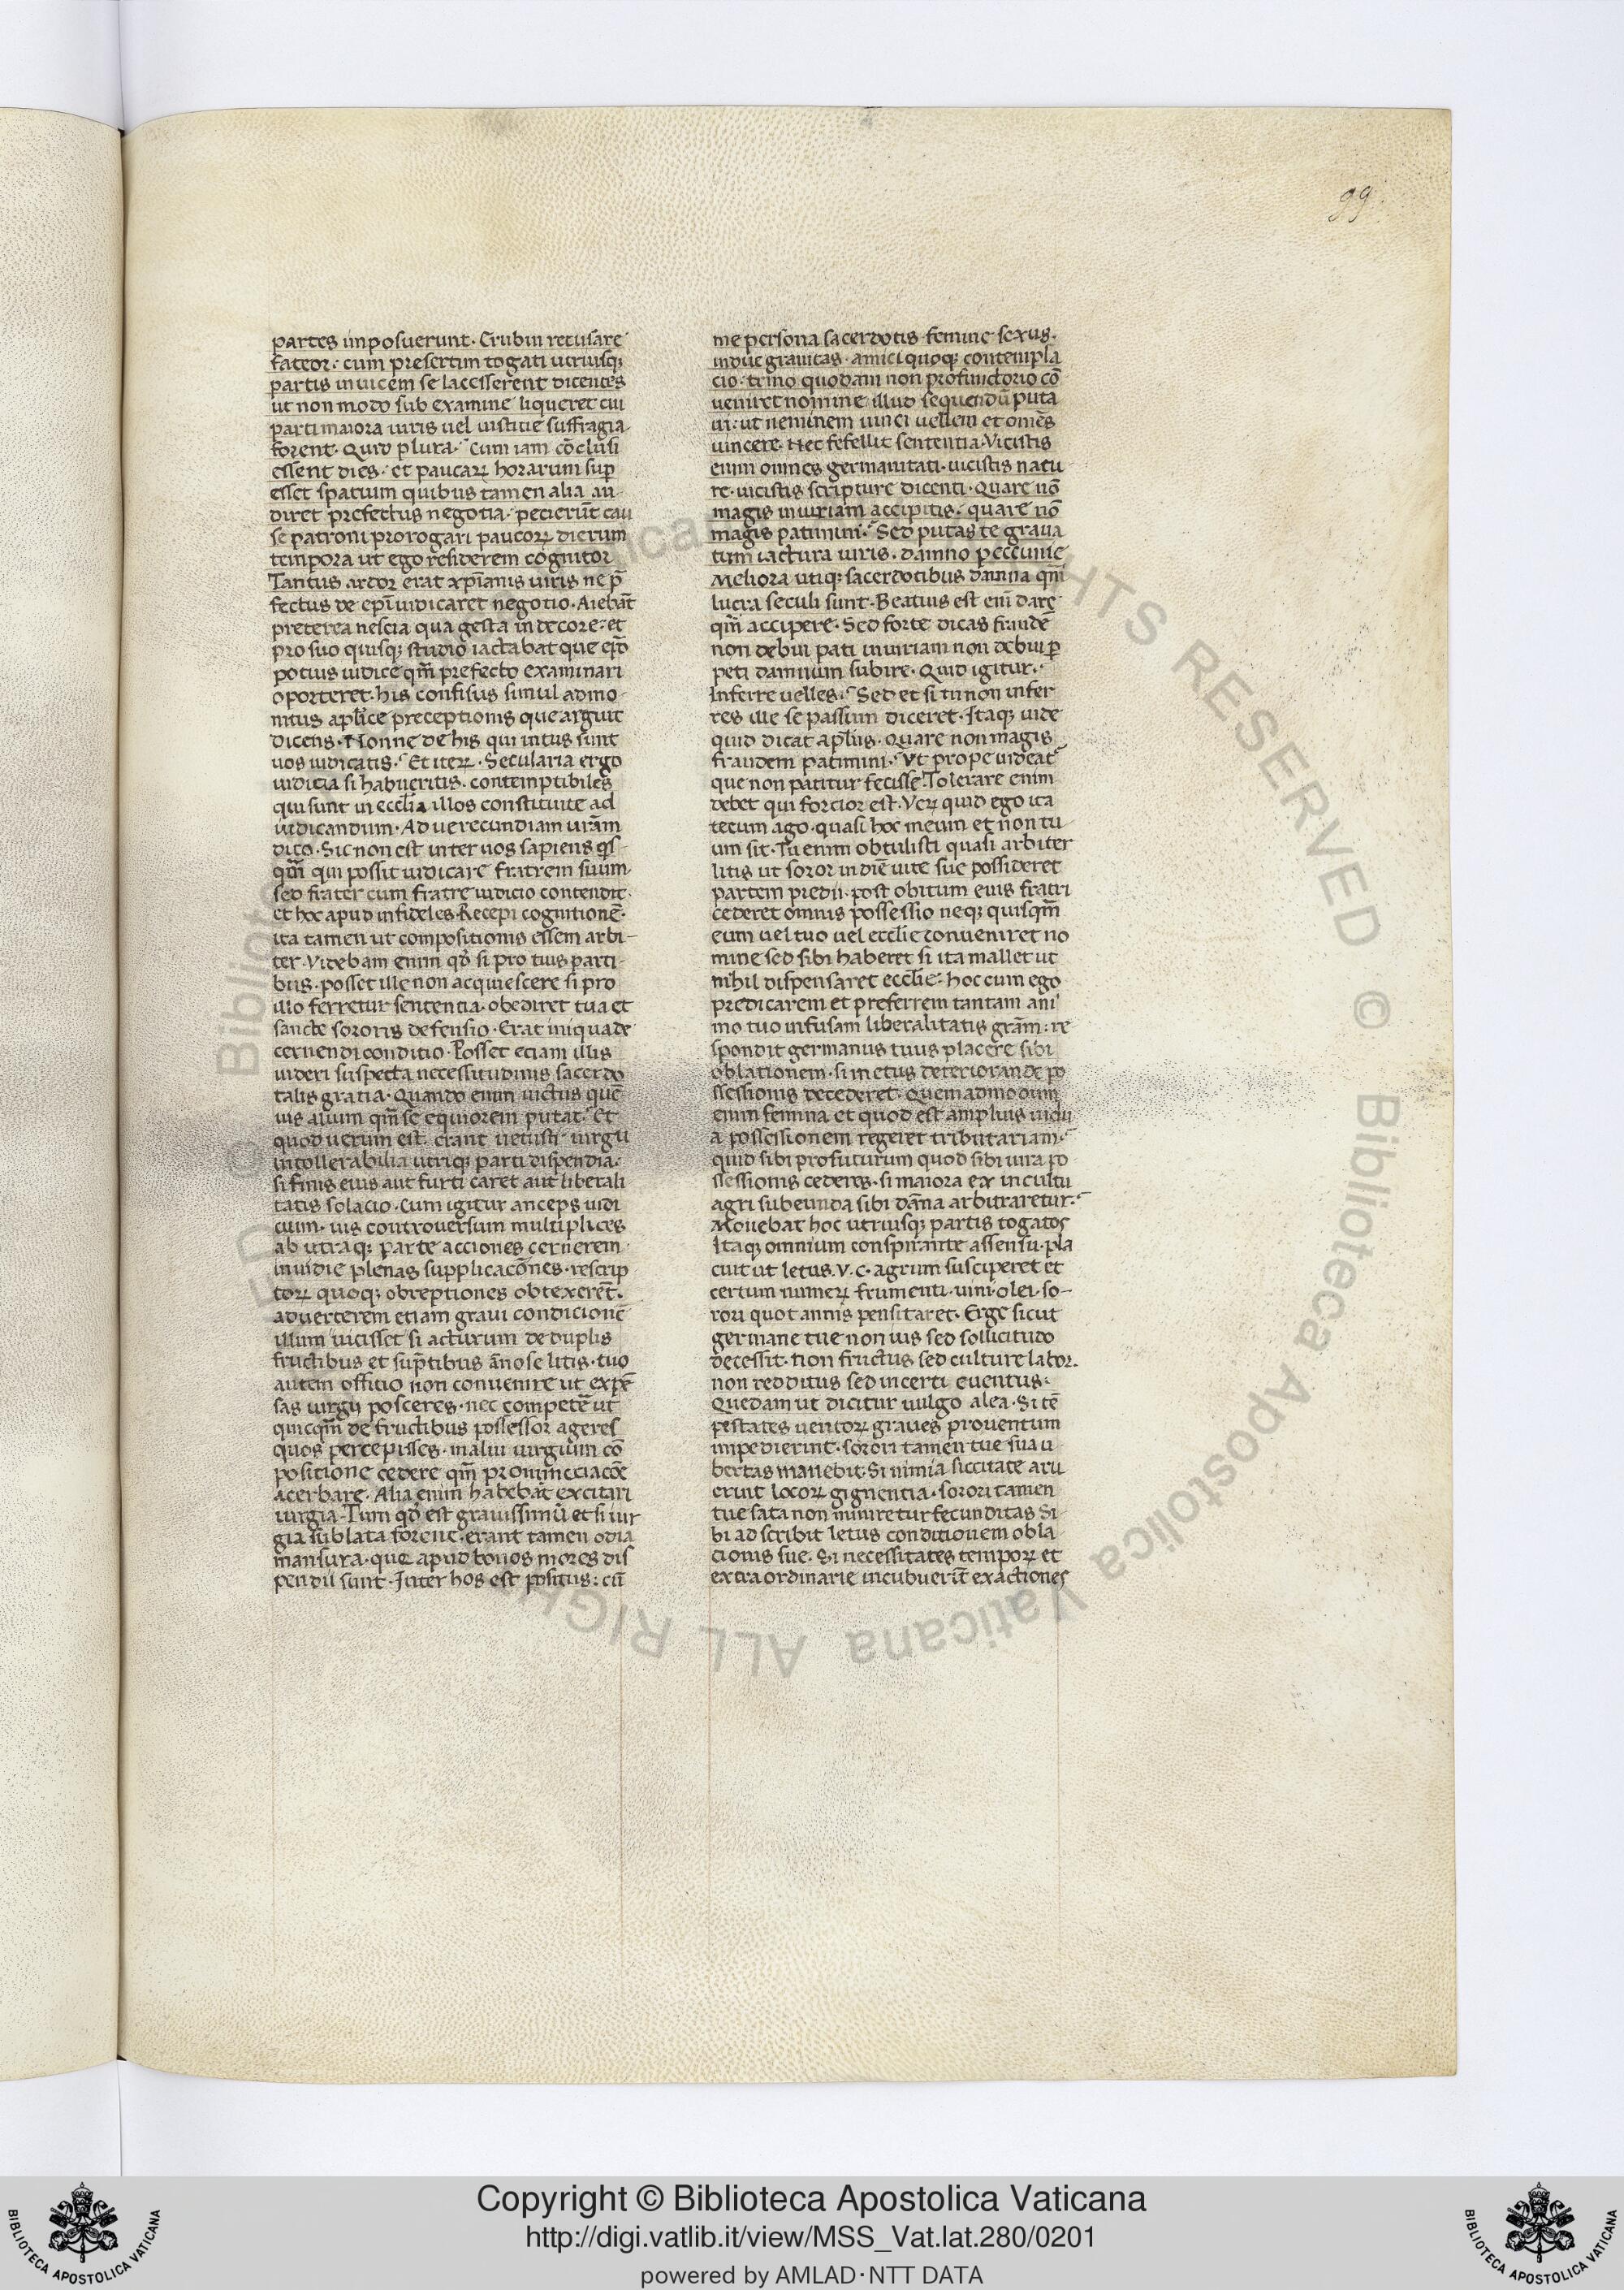 99
partes imposuerunt. Erubui recusare
fateor. cum presertim togati utriusq;
partis inuicem se laccisserent dicentes
ut non modo sub examine liqueret cui
parti maiora iuris uel iustitie suffragia
forent. Quid plura. Cum iam cōclusi
essent dies. et paucaꝝ horarum sup̄
esset spatium quibus tamen alia au-
diret prefectus negotia. pecierūt cau
se patroni prorogari paucoꝝ dierum
tempora ut ego residerem cognitor
Tantus ardor erat xp̄ianis uiris ne p̄
fectus de ep̄i iudicaret negotio. Aiebāt
preterea nescia qua gesta indecore. et
pro suo quisq; studio iactabat que ep̄o
potius iudice qm̄ prefecto examinari
oporteret. his confisus simul admo-
nitus ap̄lice preceptionis que arguit
dicens. Nonne de his qui intus sunt
uos iudicatis. Et iteꝝ. Secularia ergo
iudicia si habueritis. contemptibiles
qui sunt in ecclia illos constituite ad
iudicandum. Ad uerecundiam urām
dico. Sic non est inter uos sapiens q̄s
qm̄ qui possit iudicare fratrem suum.
sed frater cum fratre iudicio contendit.
et hoc apud infideles. Recepi cognitionē.
ita tamen ut compositionis essem arbi-
ter. Videbam enim qd̄ si pro tuis parti-
bus. posset ille non acquiescere si pro
illo ferretur sententia. obediret tua et
sancte sororis defensio. Erat iniqua de
cernendi conditio. Posset etiam illis
uideri suspecta necessitudinis sacerdo
talis gratia. Quando enim uictus quē
uis alium qm̄ se equiorem putat. Et
quod uerum est. erant uetusti iurgii
intollerabilia utriq; parti dispendia.
si finis eius aut furti caret aut liberali
tatis solacio. Cum igitur anceps iudi
cium. uis controuersum multiplices
ab utraq; parte acciones cernerem.
inuidie plenas supplicacōnes. rescrip
toꝝ quoq; obreptiones obtexerēt.
aduerterem etiam graui condicionē
illum uicisset si acturum de duplis
fructibus et sup̄tibus ānose litis. tuo
autem officio non conuenire ut expē
sas iurgii posceres. nec competē ut
quicqm̄ de fructibus possessor ageres
quos percepisses. malui iurgium cō
positione cedere qm̄ pronuncciacōe
acerbare. Alia enim habebāt excitari
iurgia. Tum qd̄ est grauissimū et si iur
gia sublata forent. erant tamen odia
mansura. que apud bonos mores dis
pendii sunt. Inter hos est positus: cū
me persona sacerdotis femine sexus.
indue grauitas. amici quoq; contempla
cio. trino quodam non profunctorio cō
ueniret nomine illud sequendū puta
ui: ut neminem uinci uellem et omēs
uincere. Nec fefellit sententia. Vicistis
enim omnes germanitati. uicistis natu
re. uicistis scripture dicenti. Quare nō
magis iniuriam accipitis. quare nō
magis patimini. Sed putas te graua
tum iactura iuris. damno peccunie
Meliora utiq; sacerdotibus danna qm̄
lucra seculi sunt. Beatius est eni dare
qm̄ accipere. Sed forte dicas fraudē
non debui pati iniuriam non debui p̄
peti damnum subire. Quid igitur.
Inferre uelles. Sed et si tu non infer
res ille se passum diceret. Itaq; uide
quid dicat ap̄lus. Quare non magis
fraudem patimini. Vt prope uideat
que non patitur fecisse. Tolerare enim
debet qui forcior est. Veꝝ quid ego ita
tecum ago. quasi hoc meum et non tu
um sit. Tu enim obtulisti quasi arbiter
litis ut soror in diē uite sue possideret
partem predii. post obitum eius fratri
cederet omnis possessio neq; quisqm̄
eum uel tuo uel ecclie conueniret no
mine sed sibi haberet si ita mallet ut
nihil dispensaret ecclie. hoc cum ego
predicarem et preferrem tantam ani
mo tuo infusam liberalitatis grām: re
spondit germanus tuus placere sibi
oblationem. si metus deteriorande po
ssessionis decederet. Quemadmodum
enim femina et quod est amplius uidu
a possessionem regeret tributariam.
quid sibi profuturum quod sibi iura po
ssessionis cederes. si maiora ex incultu
agri subeunda sibi dāna arbitraretur.
Mouebat hoc utriusq; partis togatos
Itaq; omnium conspirante assensu. pla
cuit ut letus. v. c. agrum susciperet et
certum numeꝝ frumenti. uini. olei. so-
rori quot annis pensitaret. Erge sicut
germane tue non ius sed sollicitudo
decessit. non fructus sed culture labor.
non redditus sed incerti euentus.
Quedam ut dicitur uulgo alea. Si tē
pestates uentoꝝ graues prouentum
impedierint. sorori tamen tue sua u
bertas manebit. Si nimia siccitate aru
erint locoꝝ gignentia. sorori tamen
tue sata non minuretur fecunditas Si
bi adscribit letus conditionem obla
cionis sue. Si necessitates tempoꝝ et
extraordinarie incubuerīt exactiones
Copyright © Biblioteca Apostolica Vaticana
http://digi.vatlib.it/view/MSS_Vat.lat.280/0201
powered by AMLAD·NTT DATA